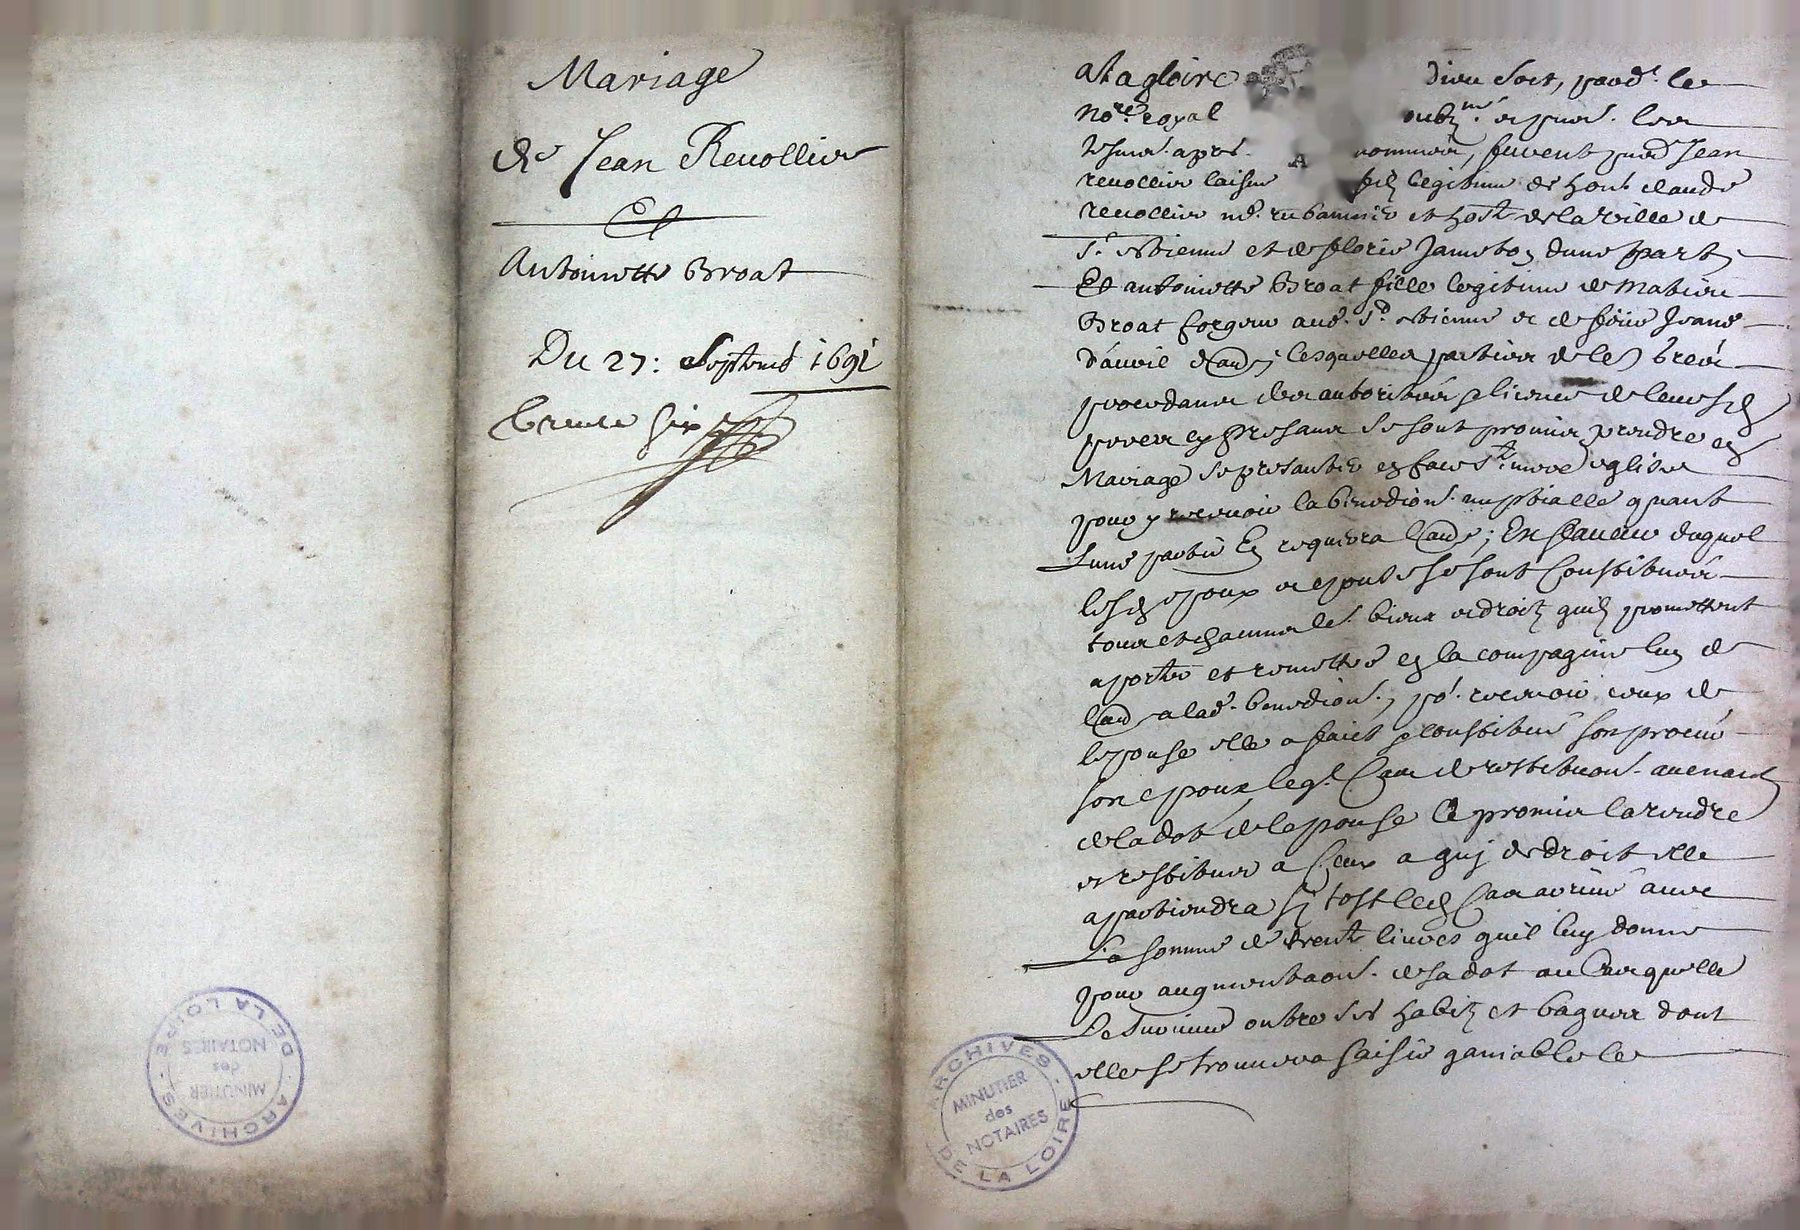 Mariage
de Jean Reuollier
Et
Antoinette Broat
Du 27: Septemb 1691
ARCHIVES DE LA LOIRE
MINUTIER
des
NOTAIRES
ala gloire dieu soit, pard.t les
no.re royal soubz.né et pnts. les
tesmoins apres nommés, furent pnts Jean
reuollier laisné filz legitime de hon.te claude
reuollier m.d rubannier et hoste de la ville de
S.t estienne et de florie Jameton dune part
Et antoinette Broat fille legitime de matieu
Broat forgeur aud. S.t estienne et de feüe Jeane
daultre lesquelles parties de leur gré
procedants des authorités licence de leursd
peres cy presants se sont promis prendre en
Mariage se presanter en face S.te mere esglise
pour y receuoir la benediction nuptialle quant
Lune partie En requerra l'autre; En faueur duquel
lesd espoux et espouse se sont Constitués
tous et chacuns les biens et droitz quilz promettent
aporter et remettre en la compagnie lun de
l'autre a lad. benediction, p.r receuoir ceux de
lepouse elle a faict constitué son procur
son epoux led. Cas de restitution auenant
de la dot de lepouse Il promis la rendre
et restituer a Ceux a quy de droit elle
apartiendra sy tost led Cas arriué auec
La somme de trente liures quil luy donne
pour augmentaon. de sa dot au Cas quelle
Le suruiue outre ses habitz et bagues dont
elle se trouuera saisie ganiable le
ARCHIVES DE LA LOIRE
MINUTIER
des
NOTAIRES